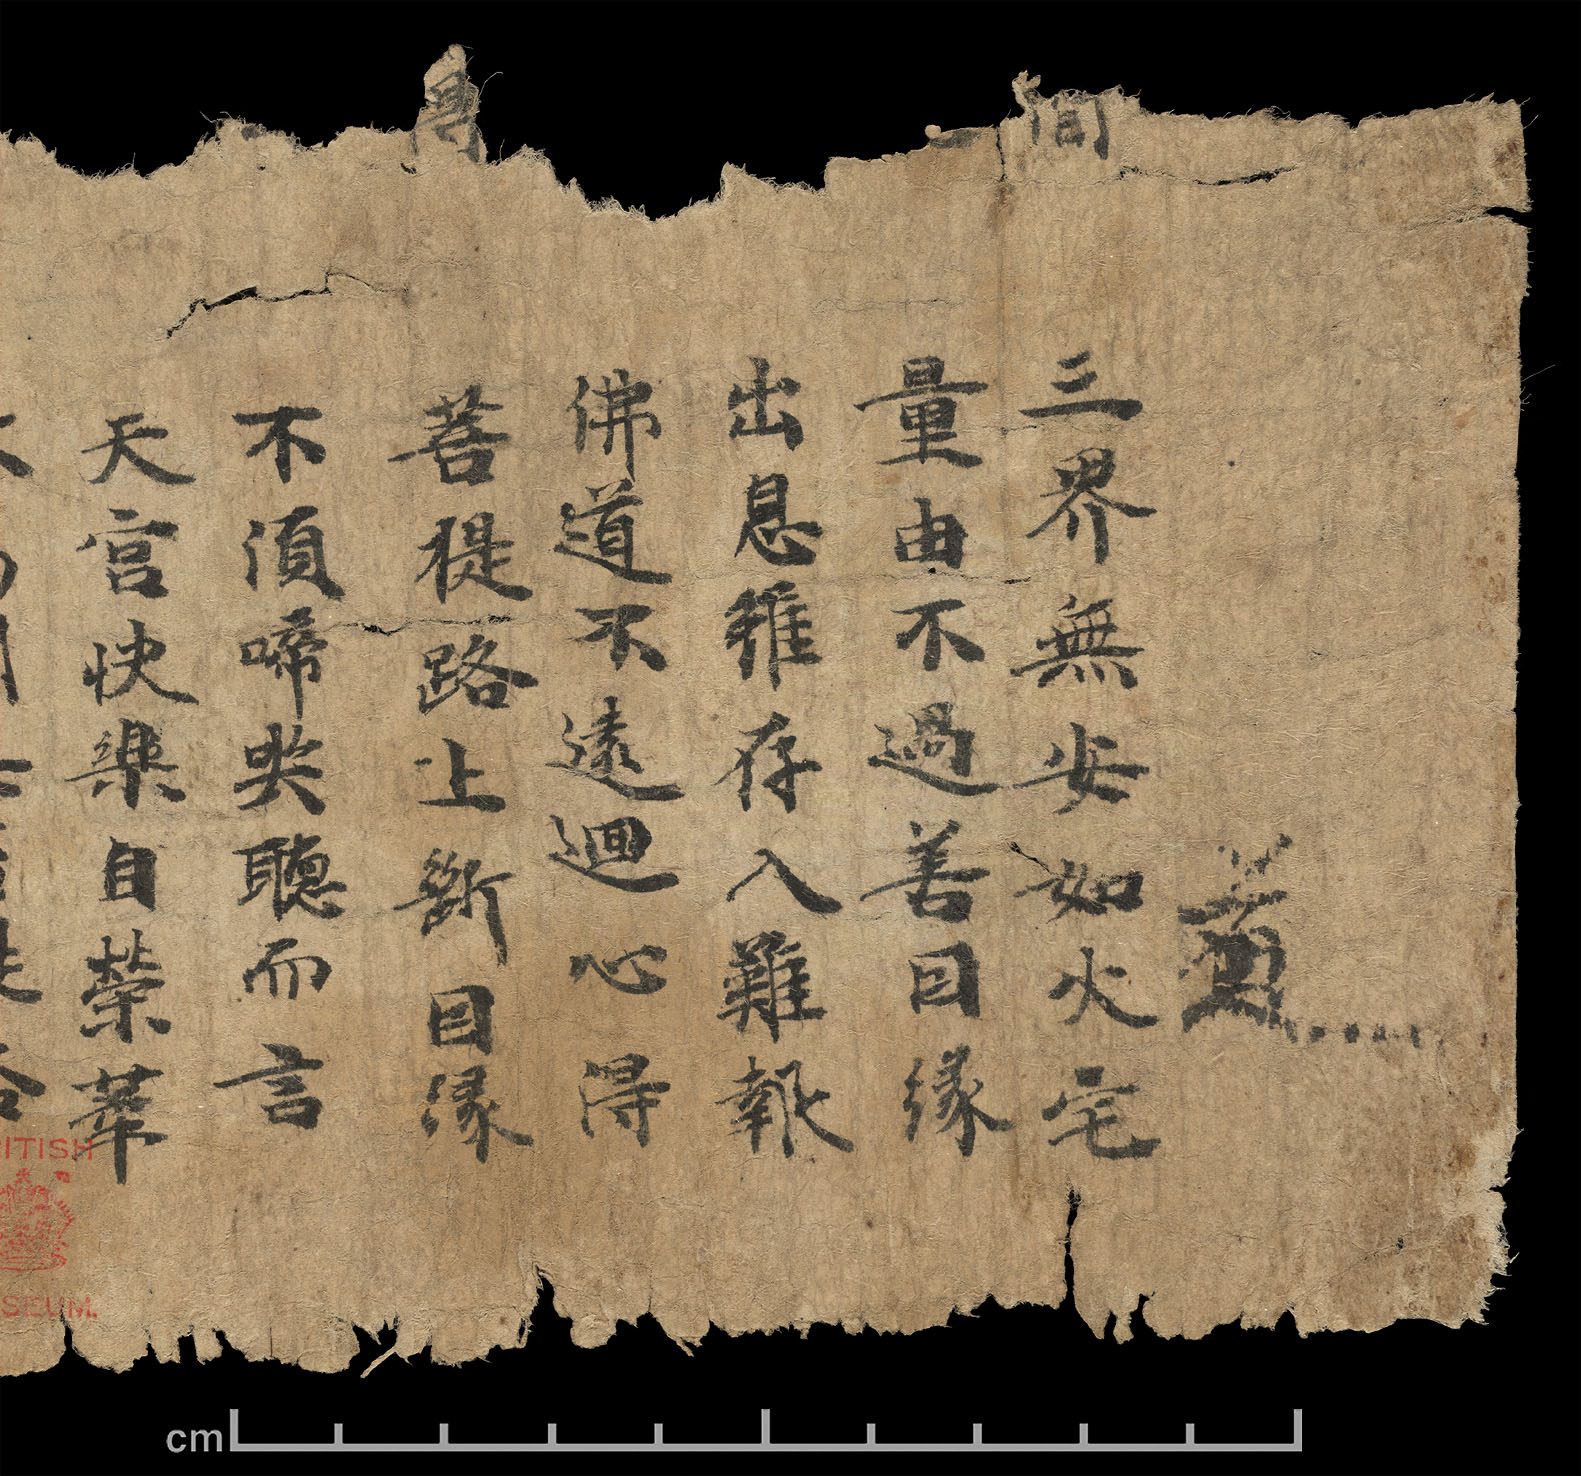 間
三界無安如火宅
量由不過善因緣
出息雖存入難報
佛道不遠迴心得
菩提路上斷因緣
不須啼哭聽而言
天宮快樂自榮華
ITISH
SEUM
cm